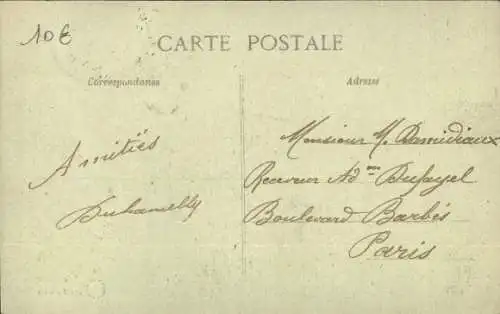 10€
CARTE POSTALE
Correspondance
Adresse
Amitiés
Duhamelly
Monsieur H. Damidiaux
Receveur Ad^on Dufayel
Boulevard Barbès
Paris